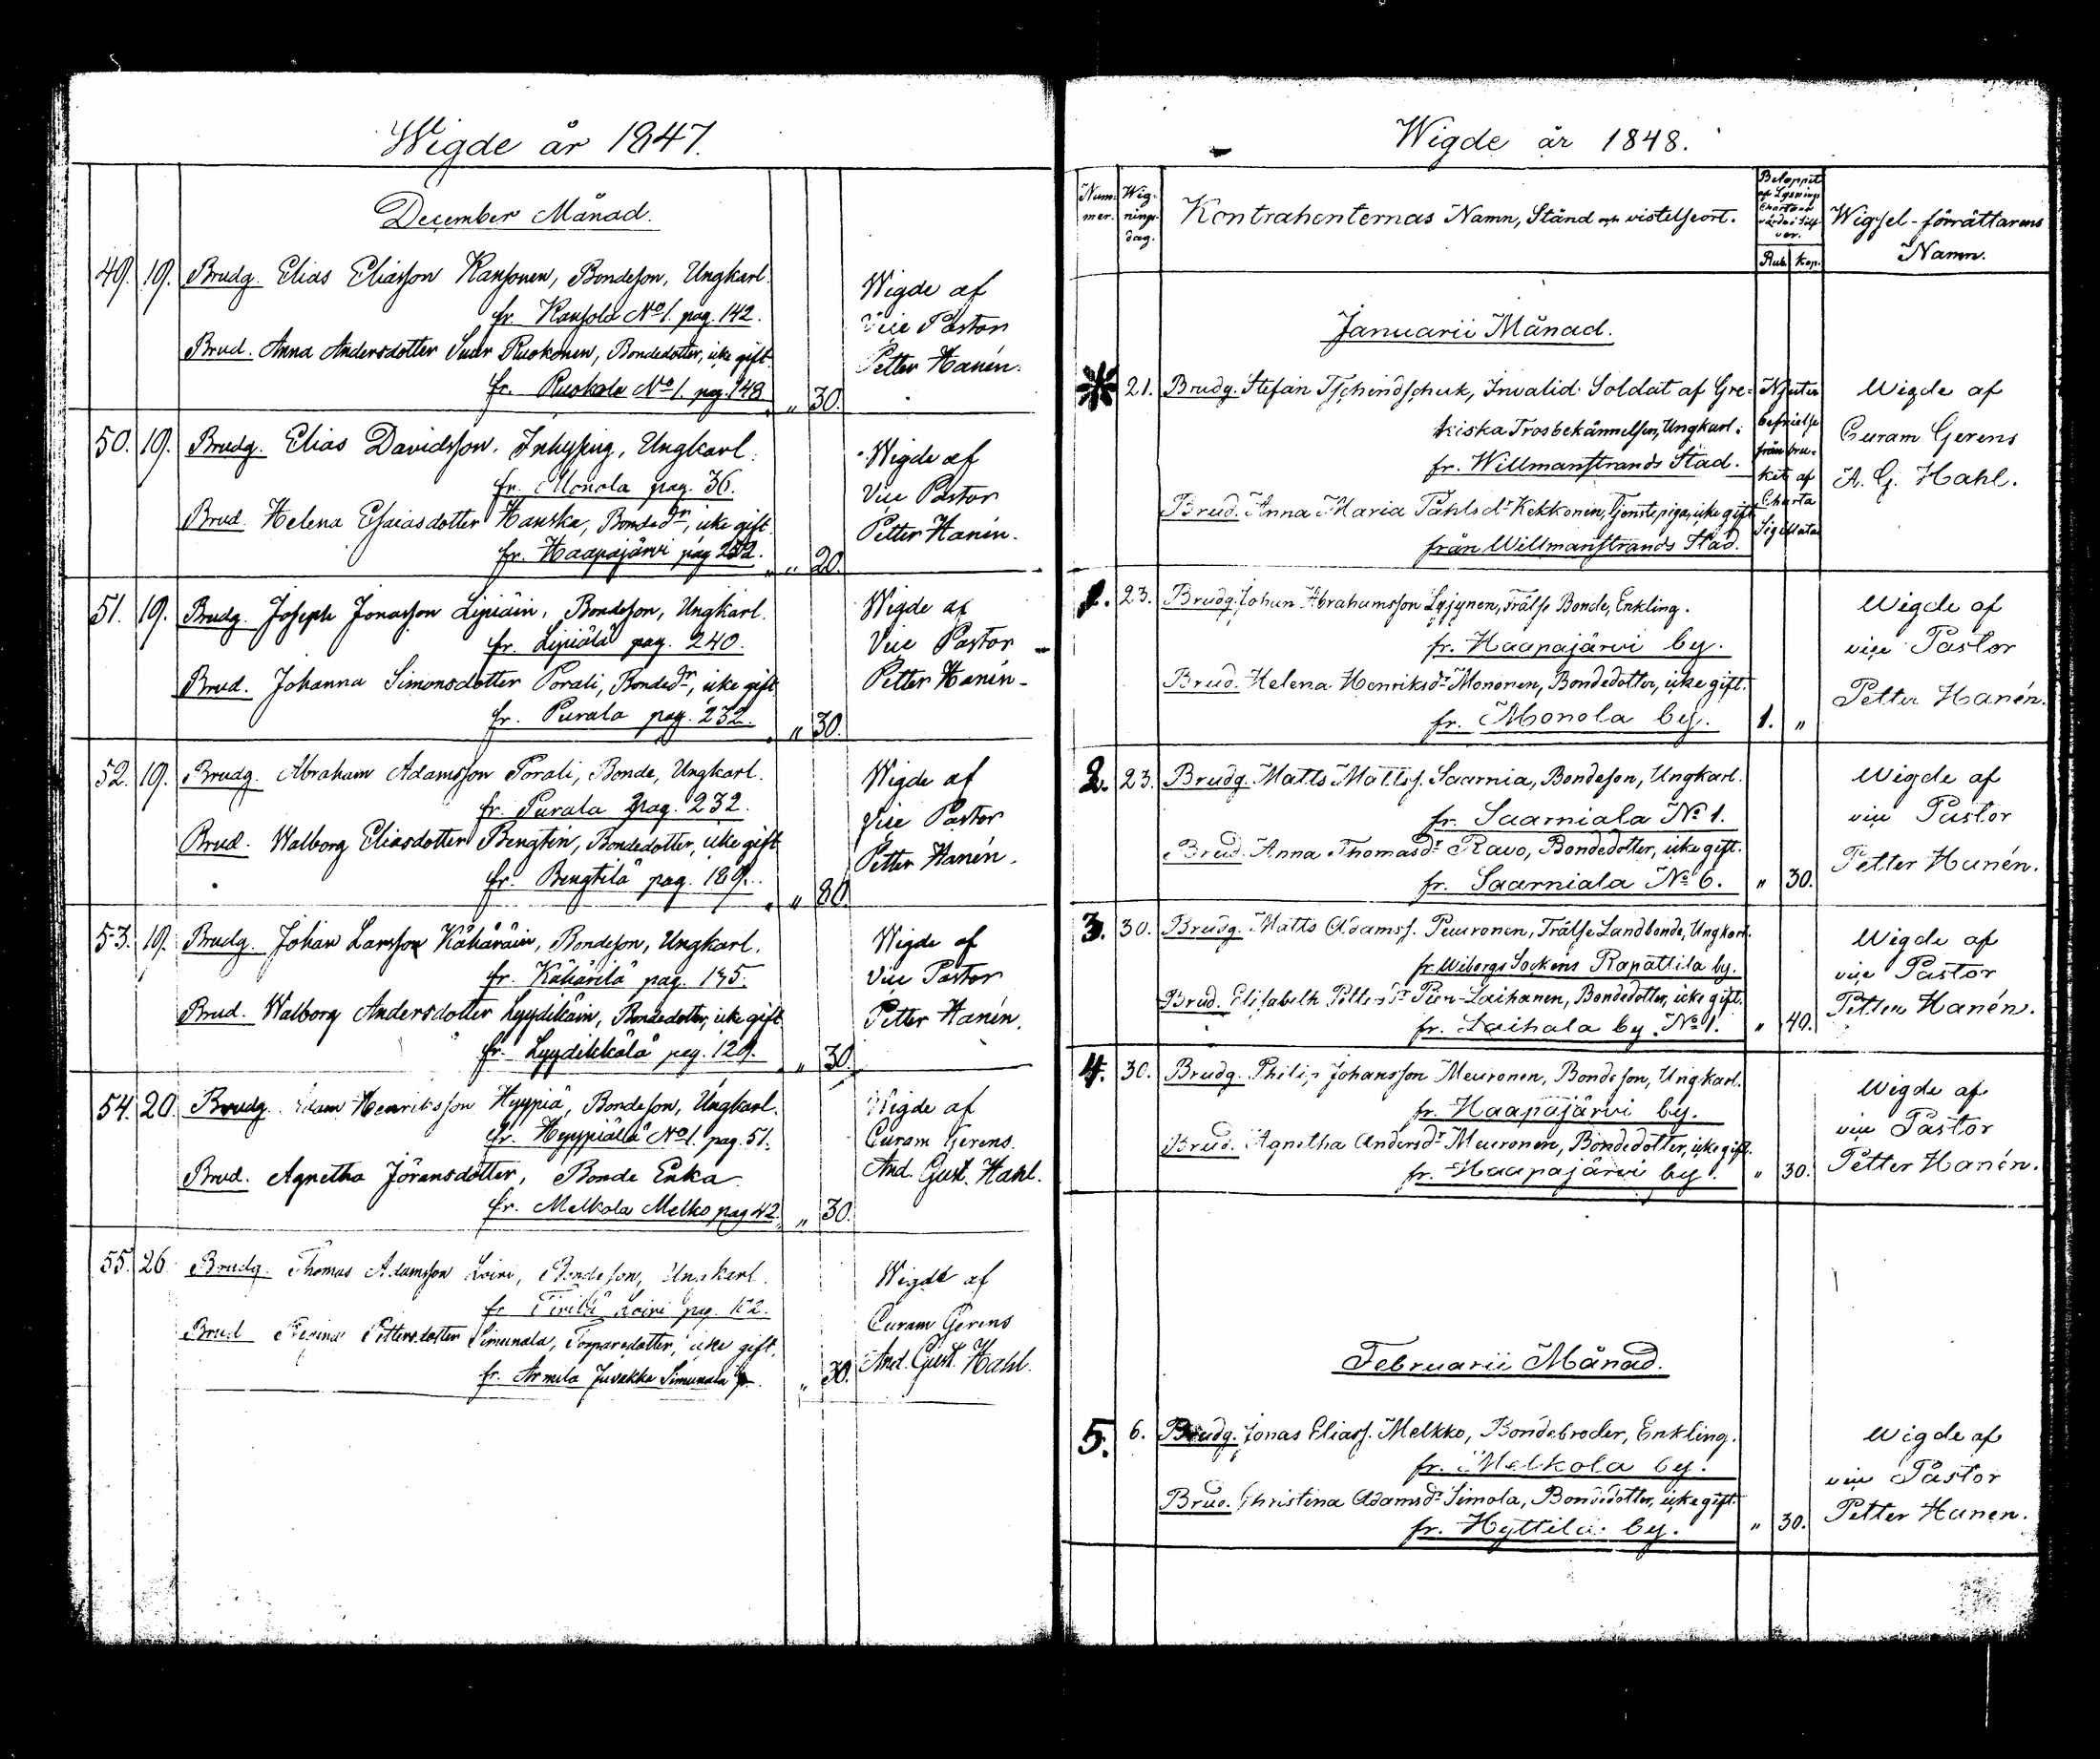 Wigde år 1847.
December Månad.
49. 19. Brudg. Elias Eliasson Kansonen, Bondeson, Ungkarl.
fr. Kansola No 1. pag. 142.
Brud. Anna Andersdotter Suur Ruokonen, Bondedotter, icke gift
fr. Ruokola No 1. pag. 148 „ 30.
Wigde af
Vice Pastor
Petter Hanén.
50. 19. Brudg. Elias Davidsson, Inhysing, Ungkarl.
fr. Monola pag. 36.
Brud. Helena Esaiasdotter Hanska, Bondedr, icke gift
fr. Haapajärvi pag 252. „ 20.
Wigde af
Vice Pastor
Petter Hanén.
51. 19. Brudg. Joseph Jonasson Lipiäin, Bondeson, Ungkarl.
fr. Lipiälä pag. 240.
Brud. Johanna Simonsdotter Porali, Bondedr, icke gift
fr. Purala pag. 232. „ 30.
Wigde af
Vice Pastor
Petter Hanén
52. 19. Brudg. Abraham Adamsson Porali, Bonde, Ungkarl.
fr. Purala pag. 232.
Brud. Walborg Eliasdotter Bengtin, Bondedotter, icke gift
fr. Bengtilä pag. 189. „ 80.
Wigde af
Vice Pastor
Petter Hanén.
53. 19. Brudg. Johan Larsson Kähäräin, Bondeson, Ungkarl.
fr. Kähärilä pag.
Brud. Walborg Andersdotter Lyydikäin, Bondedotter, icke gift
fr. Lyydikkälä pag. 129. „ 30.
Wigde af
Vice Pastor
Petter Hanén.
54. 20. Brudg. Adam Henriksson Hyypiä, Bondeson, Ungkarl.
fr. Hyypiälä No 1. pag. 51.
Brud. Agnetha Jöransdotter, Bonde Enka
fr. Melkola Melko pag 42. „ 30.
Wigde af
Curam Gerens
And. Gust. Hahl.
55. 26. Brudg. Thomas Adamsson Loiri, Bondeson, Ungkarl.
fr Loiri pag.
Brud Regina Pettersdotter Simunala, Torparedotter, icke gift.
fr. Armila Juvakka Simunala „ 30.
Wigde af
Curam Gerens
And. Gust. Hahl.
Wigde år 1848.
Num-mer. Wig-nings-dag. Kontrahenternas Namn, Stånd och vistelseort. Beloppet af Lysnings Charta värde i Silf-ver. Rub. Kop. Wigsel-förrättarens Namn.
Januarii Månad.
21. Brudg. Stefan Tschindschuk, Invalid Soldat af Gre-
kiska Trosbekännelsen, Ungkarl.
fr. Willmanstrands Stad.
Brud. Anna Maria Påhlsdr Kekkonen, Tjenstepiga, icke gift
från Willmanstrands Stad.
Njuter
befrielse
från bru-
ket af
Charta
Sigillata
Wigde af
Curam Gerens
A. G. Hahl.
1. 23. Brudg. Johan Abrahamsson Lyjynen, Frälse Bonde, Enkling.
fr. Haapajärvi by.
Brud. Helena Henriksdr Mononen, Bondedotter, icke gift.
fr. Monola by. 1. „
Wigde af
vice Pastor
Petter Hanén.
2. 23. Brudg. Matts Mattss. Saarnia, Bondeson, Ungkarl.
fr. Saarniala No 1.
Brud. Anna Thomasdr Ravo, Bondedotter, icke gift.
fr. Saarniala No 6. „ 30.
Wigde af
vice Pastor
Petter Hanén.
3. 30. Brudg. Matts Adamss. Peuronen, Frälse Landbonde, Ungkarl.
fr. Wiborgs Sockens Rapattila by.
Brud. Elisabeth Pettersdr Pien-Laihanen, Bondedotter, icke gift.
fr. Laihala by. No 1. „ 40.
Wigde af
vice Pastor
Petter Hanén.
4. 30. Brudg. Philip Johansson Meuronen, Bondeson, Ungkarl.
fr. Haapajärvi by.
Brud. Agnetha Andersdr Meuronen, Bondedotter, icke gift.
fr. Haapajärvi by. „ 30.
Wigde af
vice Pastor
Petter Hanén.
Februarii Månad.
5. 6. Brudg. Jonas Eliass. Melkko, Bondebroder, Enkling.
fr. Melkola by.
Brud. Christina Adamsdr Simola, Bondedotter, icke gift.
fr. Hyttilä by. „ 30.
Wigde af
vice Pastor
Petter Hanen.